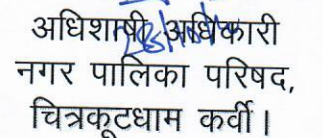 अधिशाषी अधिकारी
नगर पालिका परिषद,
चित्रकूटधाम कर्वी।